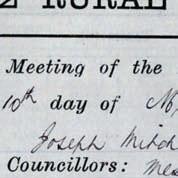 RURAL
Meeting of the
10th day of
Joseph Mitch
Councillors: